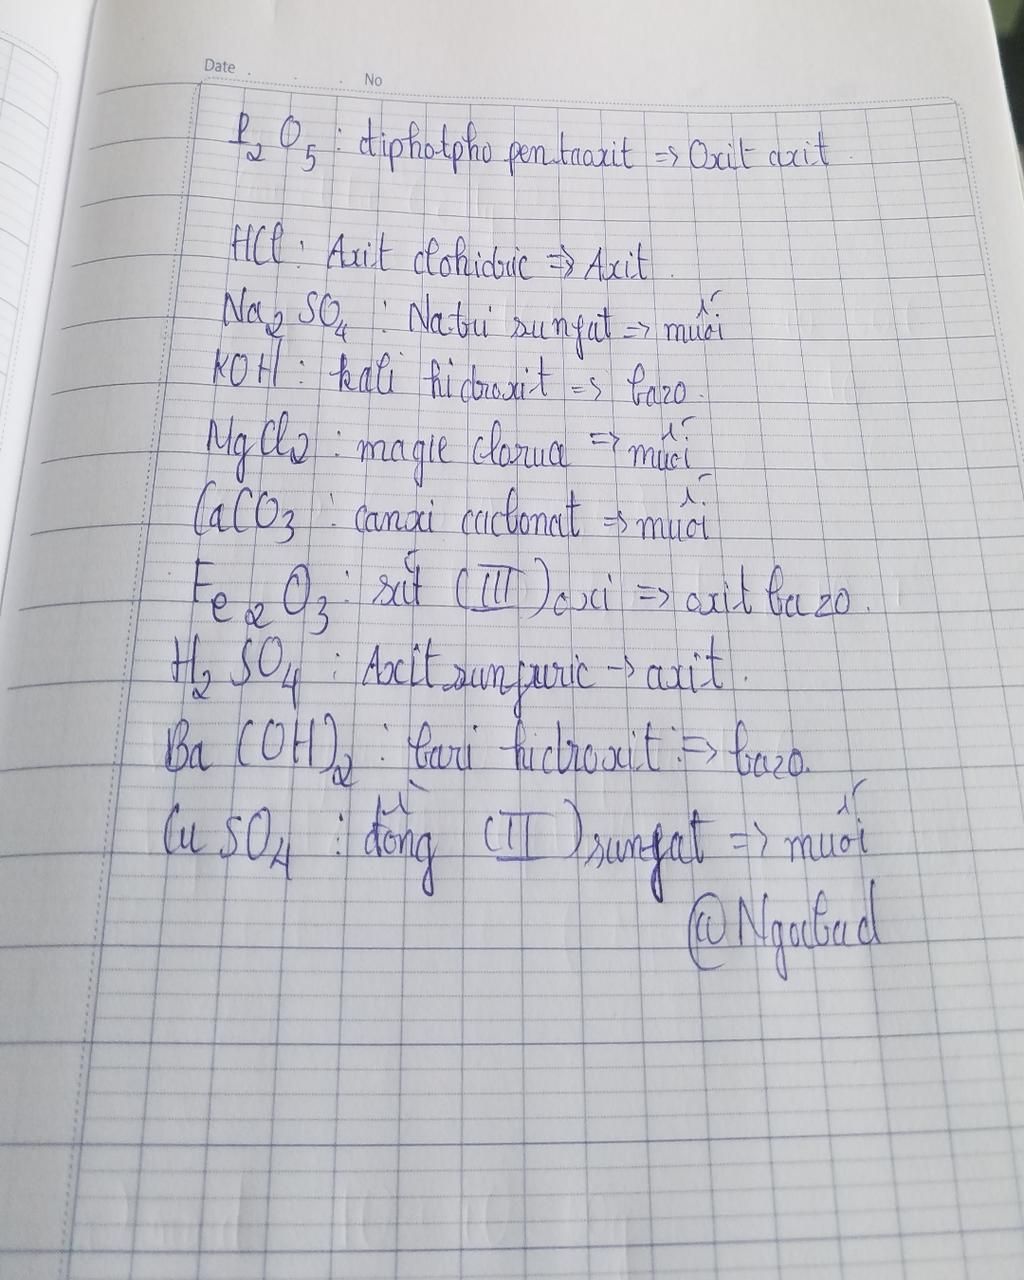 Date No
P₂O₅ : điphotpho pentaaxit => Oxit axit.
HCl : Axit clohidric => Axit.
Na₂SO₄ : Natri sunfat => muối
KOH : kali hidroxit => bazo.
MgCl₂ : magie clorua => muối
CaCO₃ : canxi cacbonat => muối
Fe₂O₃ : sắt (III) oxi => oxit bazo.
H₂SO₄ : Axit sunfuric -> axit.
Ba(OH)₂ : bari hidroxit => bazo.
CuSO₄ : đồng (II) sunfat => muối